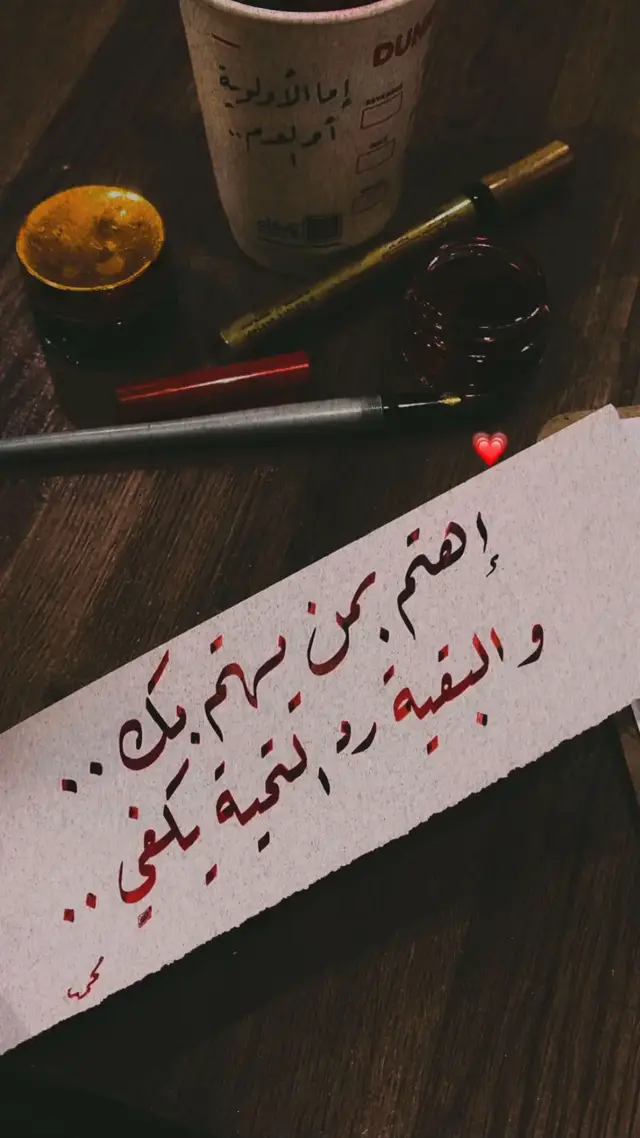 DUN
إما الأولوية
أو العدم..
إهتم بمن يهتم بك..
والبقية رد التحية يكفي..